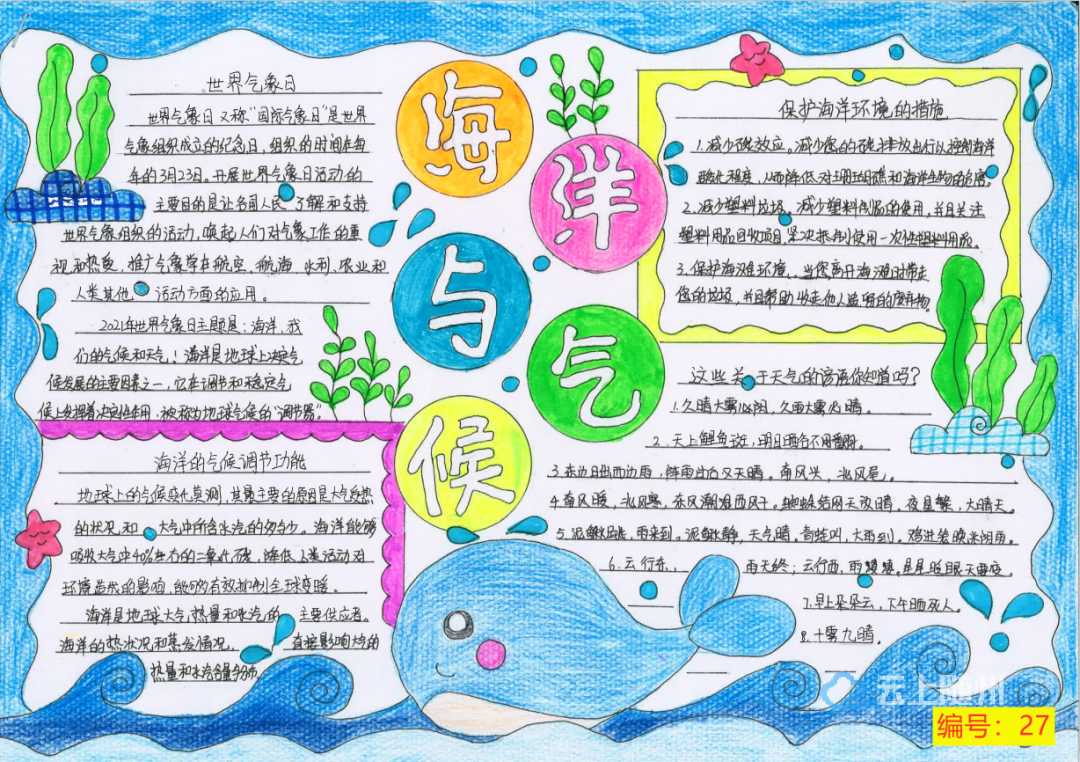 海洋与气候
世界气象日
世界气象日又称“国际气象日”是世界
气象组织成立的纪念日，组织的时间在每
年的3月23日。开展世界气象日活动的
主要目的是让各国人民 了解和支持
世界气象组织的活动，唤起人们对气象工作的重
视和热爱，推广气象学在航空、航海、水利、农业和
人类其他 活动方面的应用。
2021年世界气象日主题是：海洋、我
们的气候和天气！海洋是地球上决定气
候发展的主要因素之一，它在调节和稳定气
候上发挥着决定性作用，被称为地球气候的“调节器”。
海洋的气候调节功能
地球上的气候变化莫测，其最主要的原因是大气受热
的状况和 大气中所含水汽的多少。海洋能够
吸收大气中40%左右的二氧化碳，降低人类活动对
环境造成的影响，能够有效抑制全球变暖。
海洋是地球大气热量和水汽的 主要供应者。
海洋的热状况和蒸发情况， 直接影响大气的
热量和水汽含量与分布
保护海洋环境的措施
1.减少碳效应。减少您的碳排放出行以控制海洋
酸化程度，从而降低对珊瑚礁和海洋生物的危害。
2.减少塑料垃圾，减少塑料制品的使用，并且关注
塑料用品回收项目，坚决抵制使用一次性塑料用品。
3.保护海滩环境。当您离开海滩时带走
您的垃圾，并且帮助收走他人监留的废弃物。
这些关于天气的谚语你知道吗？
1.久晴大雾必阴，久雨大雾必晴。
2.天上鲤鱼斑，明日晒谷不用翻。
3.东边日出西边雨，阵雨过后又天晴。南风头，北风尾。
4.南风暖，北风寒，东风潮湿西风干。蜘蛛结网天放晴，夜星繁，大晴天。
5.泥鳅跳，雨来到。泥鳅静，天气晴。青蛙叫，大雨到。鸡进笼晚米阴雨。
6.云行东， 雨天终；云行西，雨凄凄。星星眨眼天要变。
7.早上朵朵云，下午晒死人。
8.十雾九晴。
云上随州
编号：27